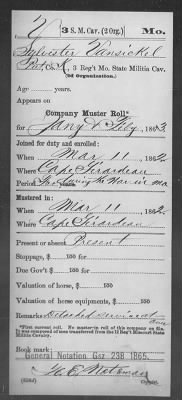 V 3 S. M. Cav. (2 Org.) Mo.
Sylvester Vansickel
Pvt, Co. K, 3 Reg't Mo. State Militia Cav.
(2d Organization.)
Age years.
Appears on
Company Muster Roll*
for Jany & Feby, 1863.
Joined for duty and enrolled:
When Mar 11, 1862.
Where Cape Girardeau
Period During the War in Mo
Mustered in:
When Mar 11, 1862.
Where Cape Girardeau
Present or absent Present
Stoppage, $ 100 for
Due Gov't $ 100 for
Valuation of horse, $ 100
Valuation of horse equipments, $ 100
Remarks: Detached service at
*First current roll. No muster-in roll of this company on file.
It was composed of men transferred from the 12 Reg't Missouri State
Militia Cavalry.
Book mark:
General Notation Gsz 238 1865.
(358d) Copyist.